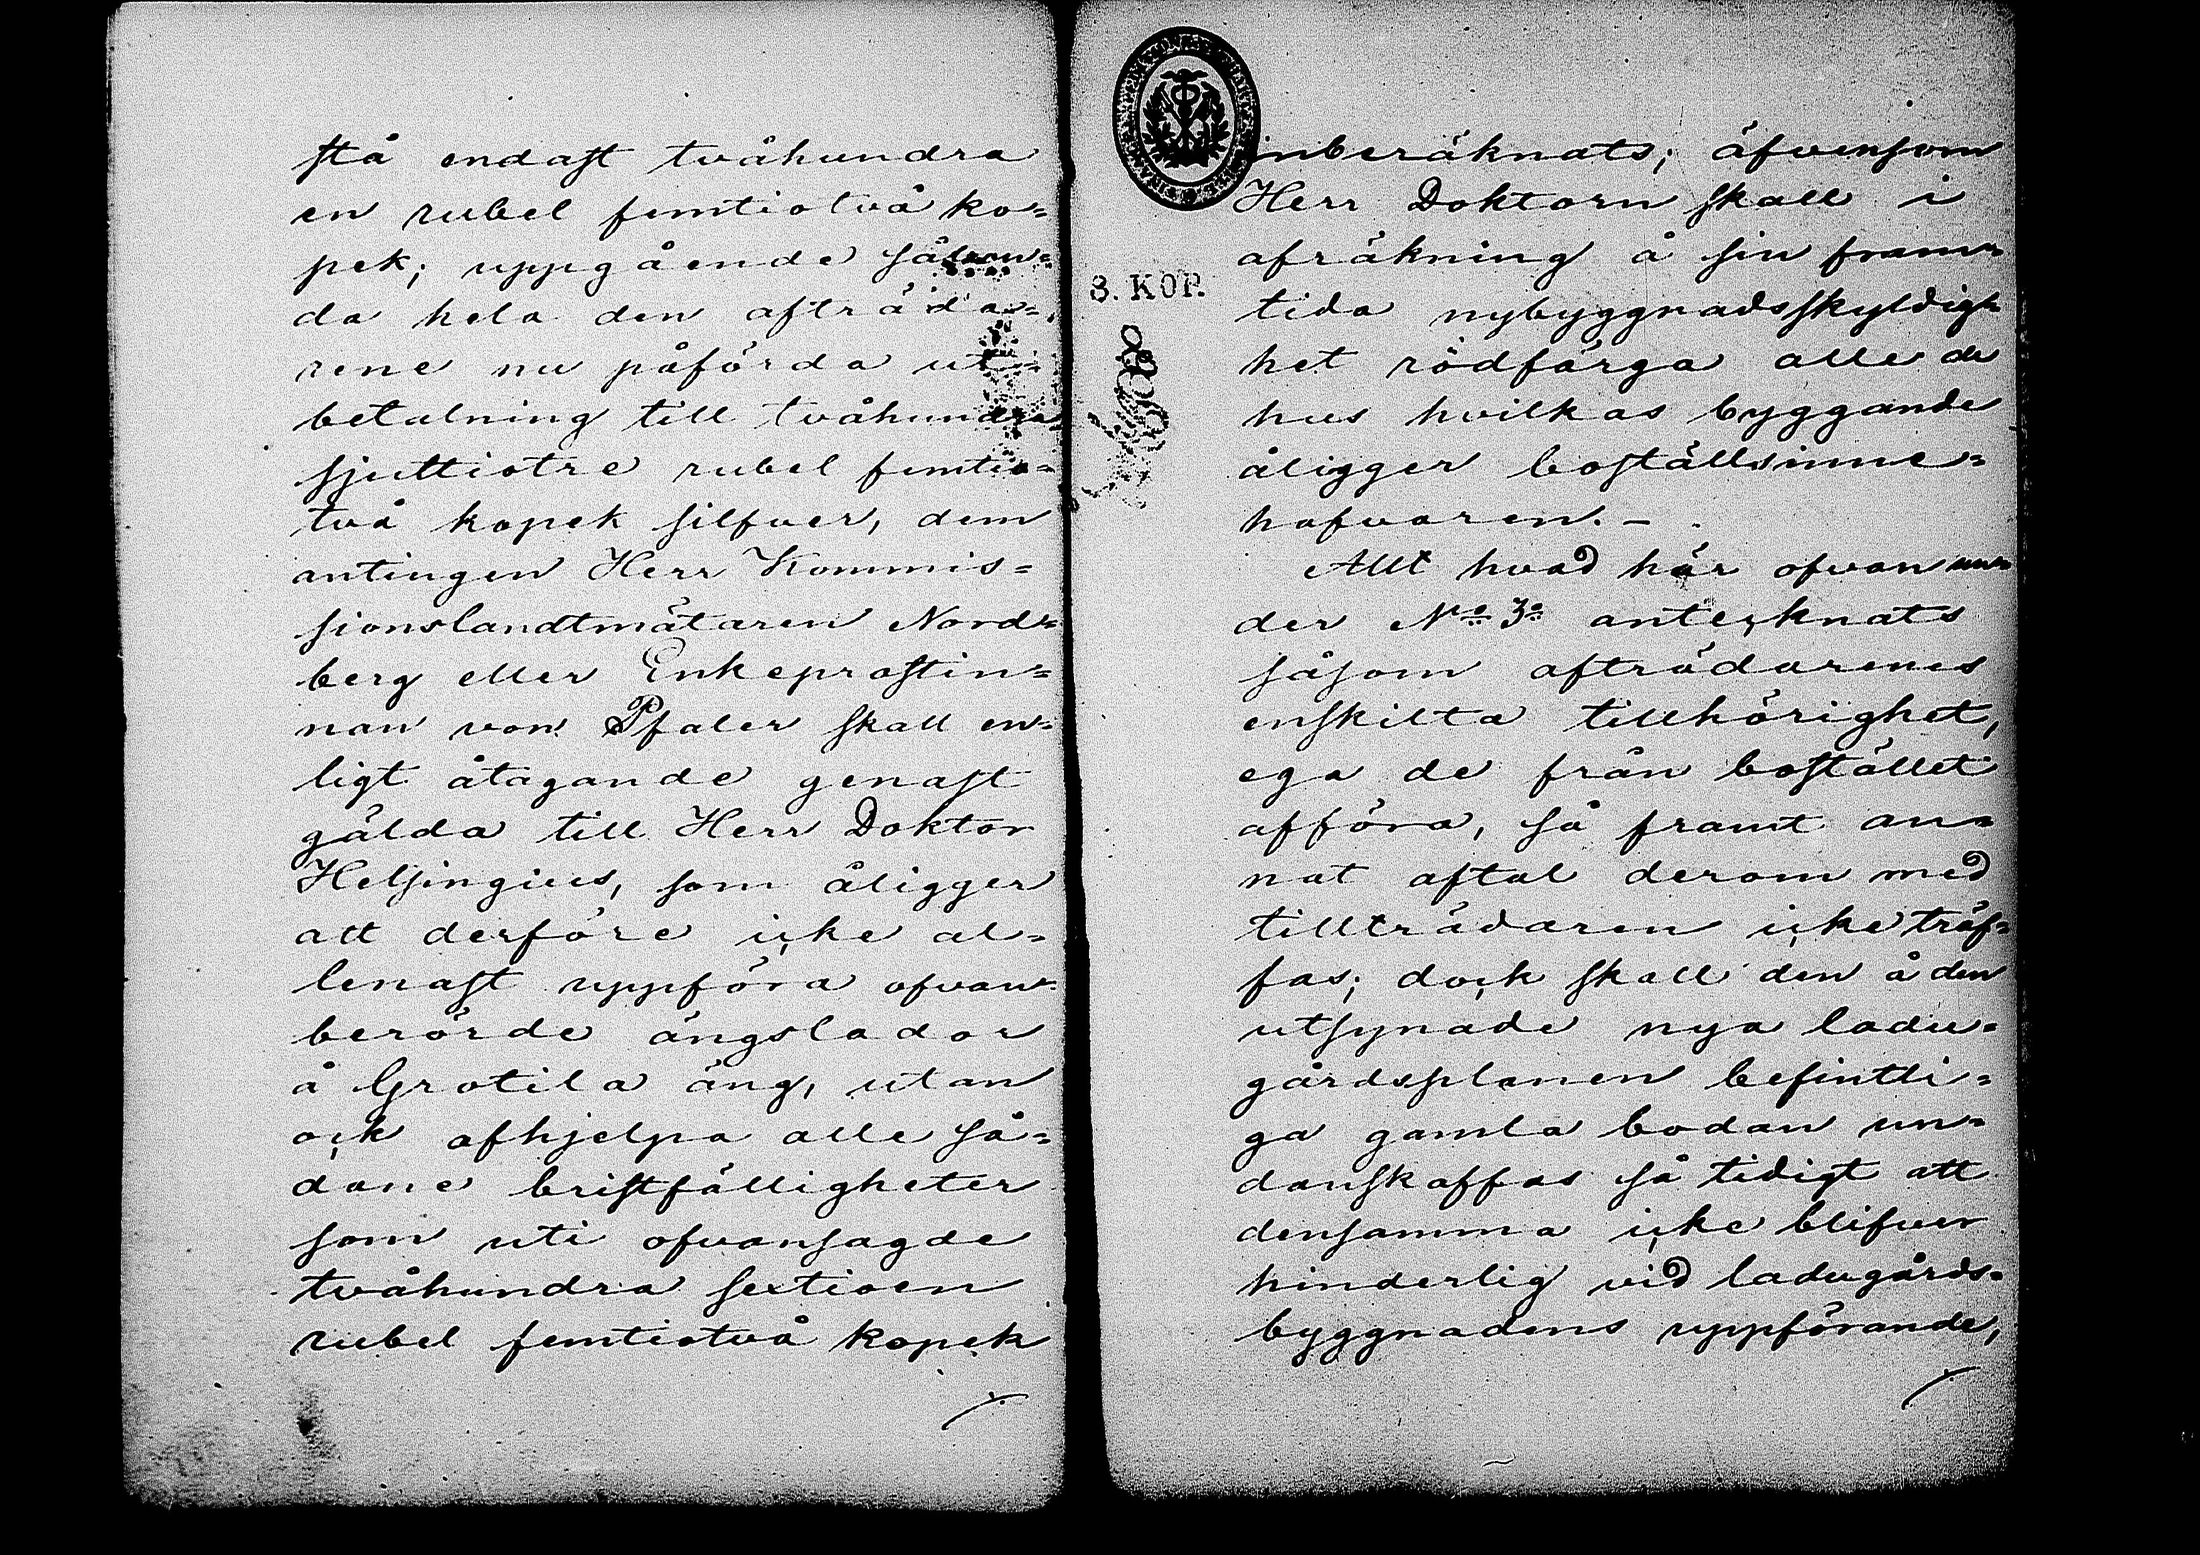 stå endast tvåhundra
en rubel femtiotvå ko=
pek; uppgående sålun=
da hela den afträda=
rene nu påförda ut=
betalning till tvåhundra
sjuttiotre rubel femtio=
två kopek silfver, dem
antingen Herr Kommis=
sionslandtmätaren Nord=
berg eller Enkeprostin=
nan von Pfaler skall en=
ligt åtagande genast
gälda till Herr Doktor
Helsingius, som åligger
att derföre icke al=
lenast uppföra ofvan=
berörde ängslador
å Grotila äng, utan
ock afhjelpa alle så=
dane bristfälligheter
som uti ofvansagde
tvåhundra sextioen
rubel femtiotvå kopek
inberäknats; äfvensom
Herr Doktorn skall i
afräkning å sin fram=
tida nybyggnadsskyldig=
het rödfärga alle de
hus hvilkas byggande
åligger boställsinne=
hafvaren. –
Allt hvad här ofvan un=
der No 3o antecknats
såsom afträdarenes
enskilta tillhörighet,
ega de från bostället
afföra, så framt an=
nat aftal derom med
tillträdaren icke träf=
fas; dock skall den å den
utsynade nya ladu=
gårdsplanen befintli=
ga gamla bodan un=
danskaffas så tidigt att
densamma icke blifver
hinderlig vid ladugårds=
byggnadens uppförande,
3. KOP.